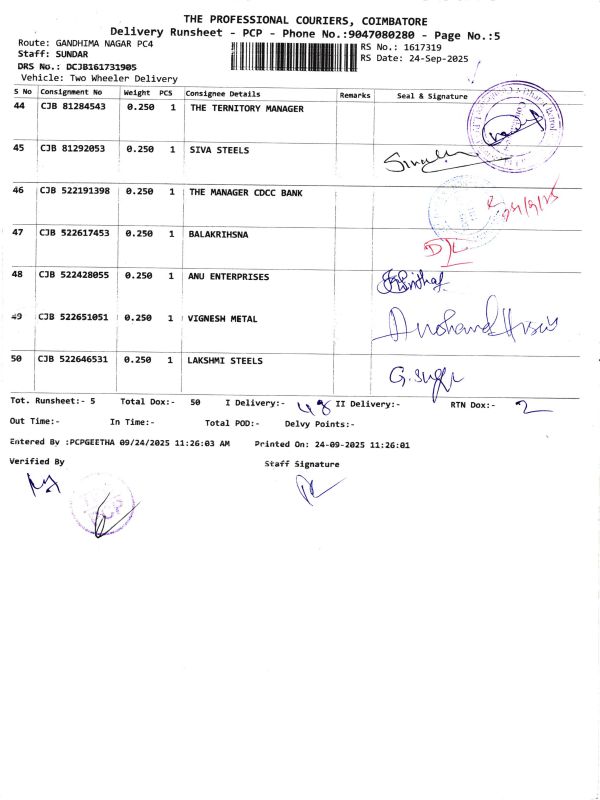 THE PROFESSIONAL COURIERS, COIMBATORE
Delivery Runsheet - PCP - Phone No.:9047080280 - Page No.:5
Route: GANDHIMA NAGAR PC4
RS No.: 1617319
Staff: SUNDAR
RS Date: 24-Sep-2025
DRS No.: DCJB161731905
Vehicle: Two Wheeler Delivery
S No Consignment No Weight PCS Consignee Details Remarks Seal & Signature
44 CJB 81284543 0.250 1 THE TERNITORY MANAGER
45 CJB 81292053 0.250 1 SIVA STEELS
46 CJB 522191398 0.250 1 THE MANAGER CDCC BANK 24/9/25
47 CJB 522617453 0.250 1 BALAKRIHSNA D/L
48 CJB 522428055 0.250 1 ANU ENTERPRISES
49 CJB 522651051 0.250 1 VIGNESH METAL
50 CJB 522646531 0.250 1 LAKSHMI STEELS
Tot. Runsheet:- 5 Total Dox:- 50 I Delivery:- 48 II Delivery:- RTN Dox:- 2
Out Time:- In Time:- Total POD:- Delvy Points:-
Entered By :PCPGEETHA 09/24/2025 11:26:03 AM Printed On: 24-09-2025 11:26:01
Verified By Staff Signature